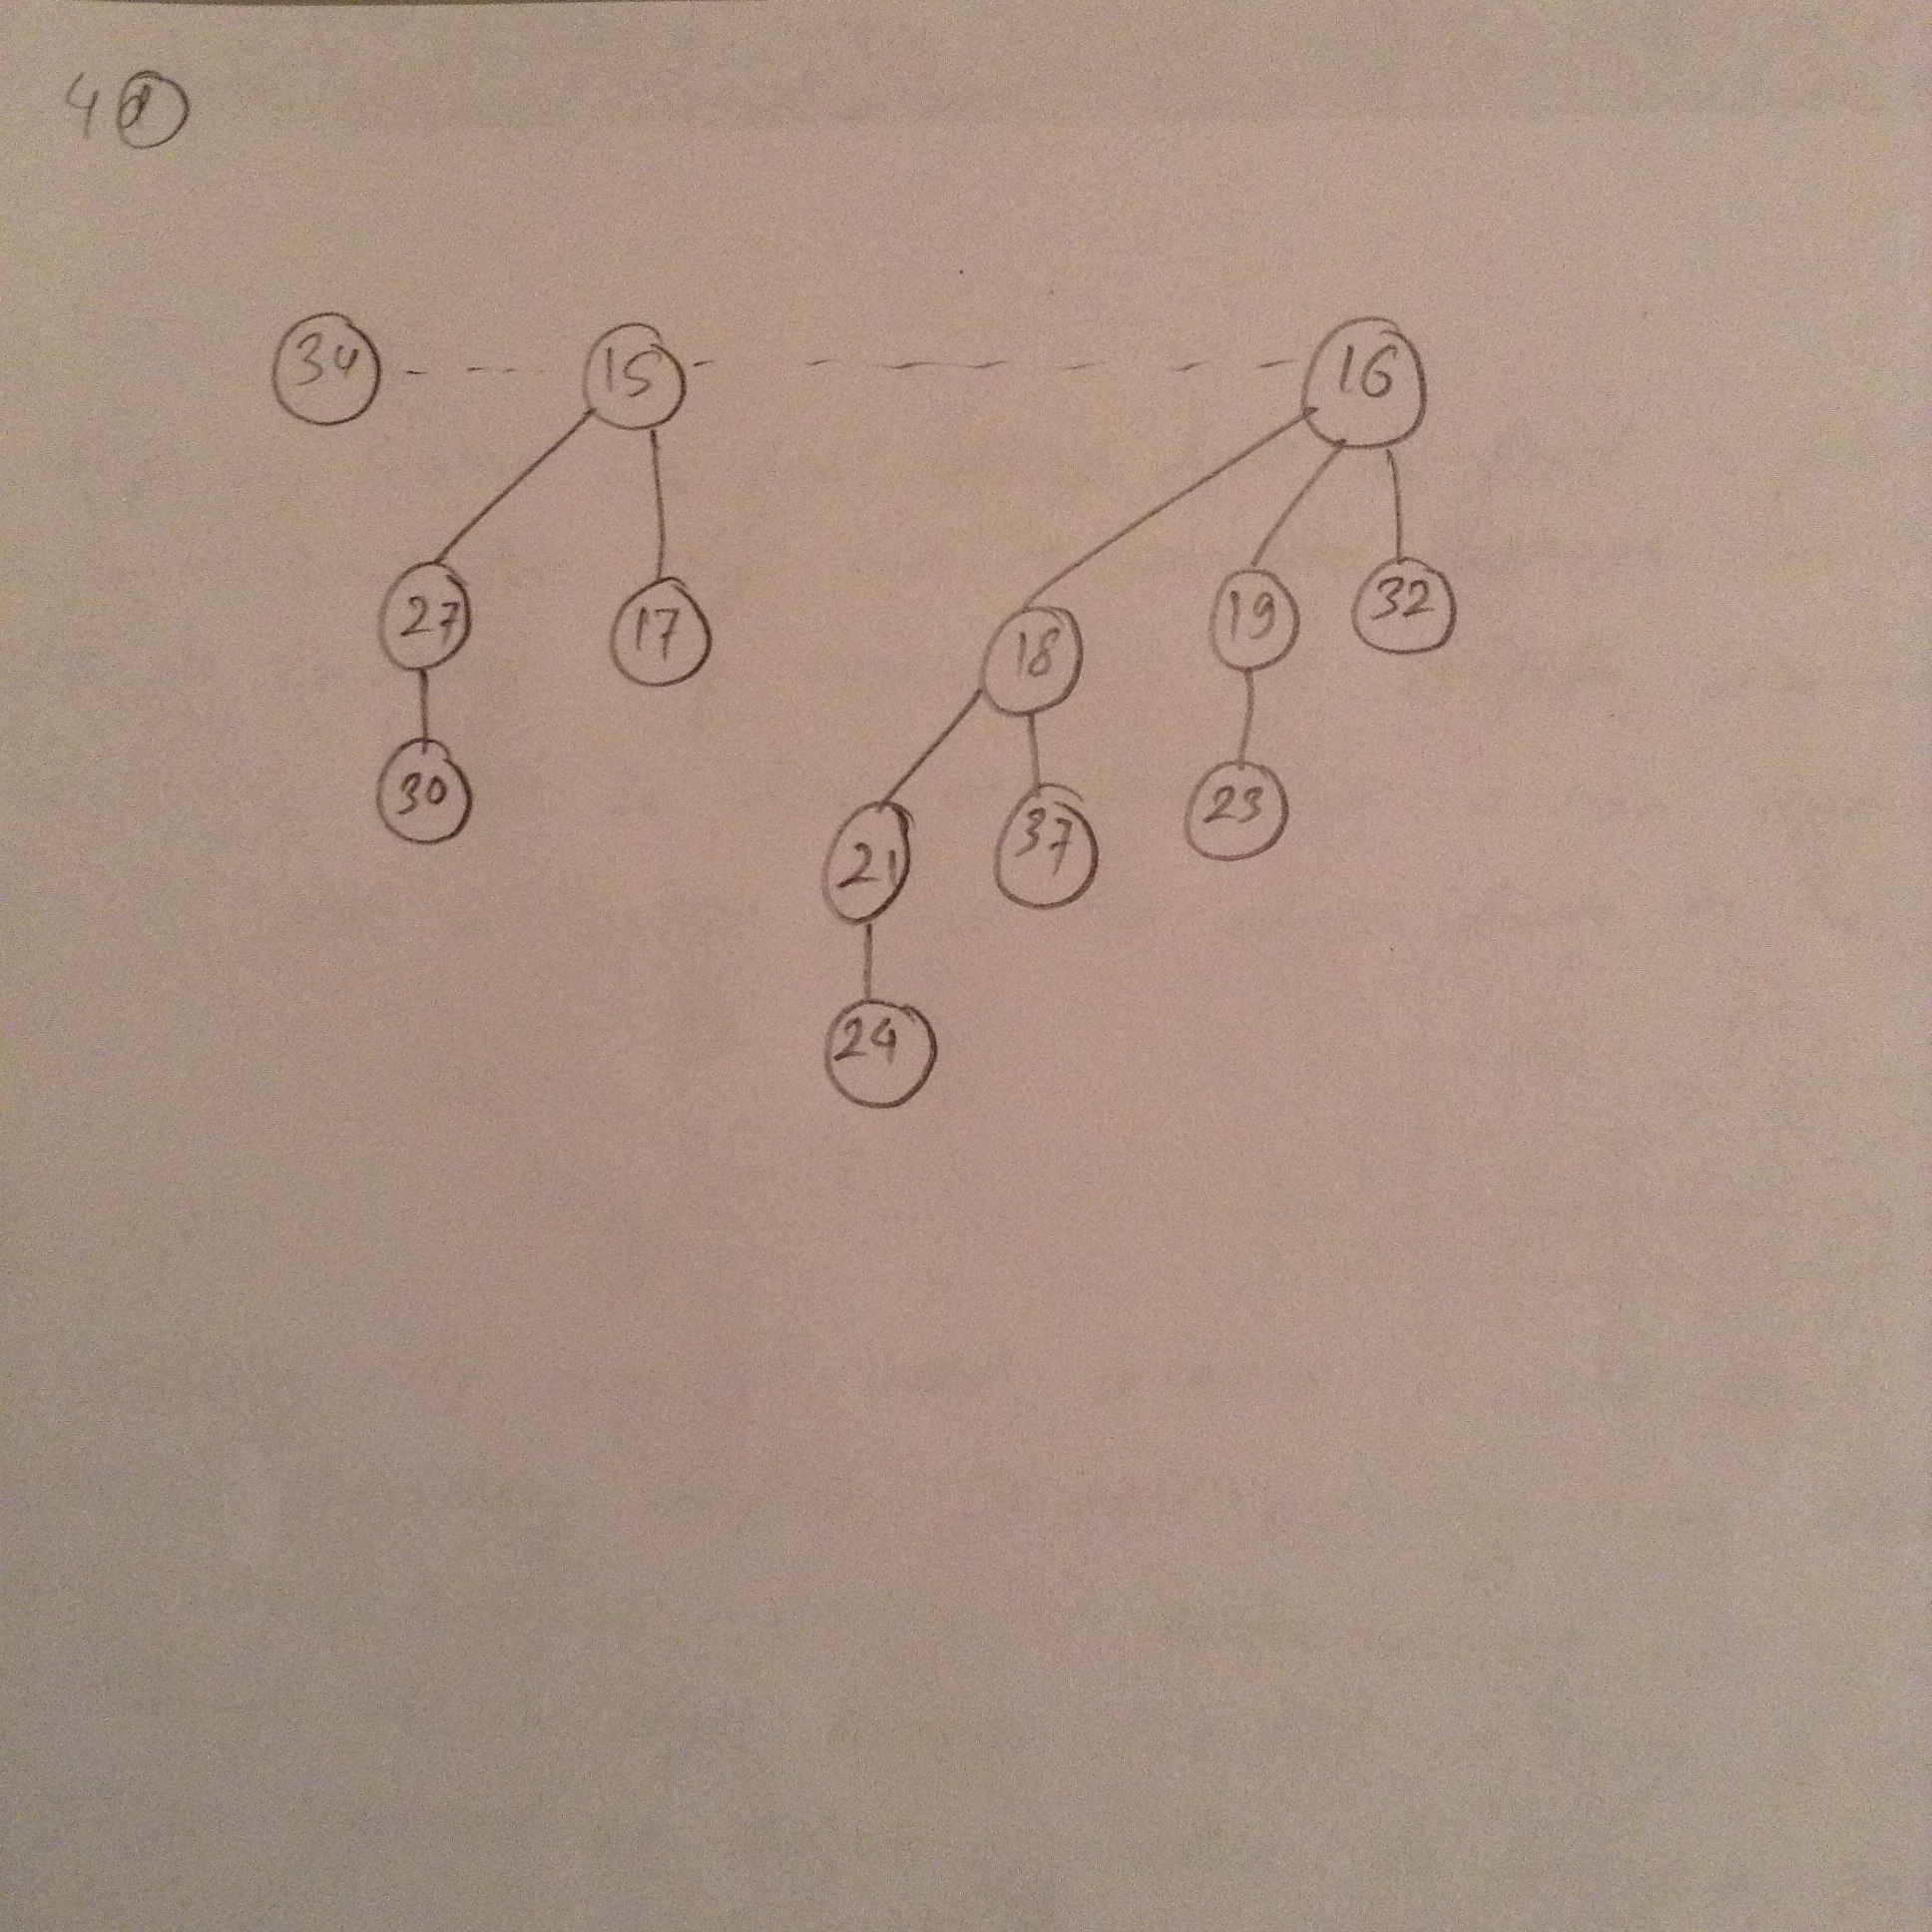 4 d
34 15 16
27 17 18 19 32
30 21 37 23
24